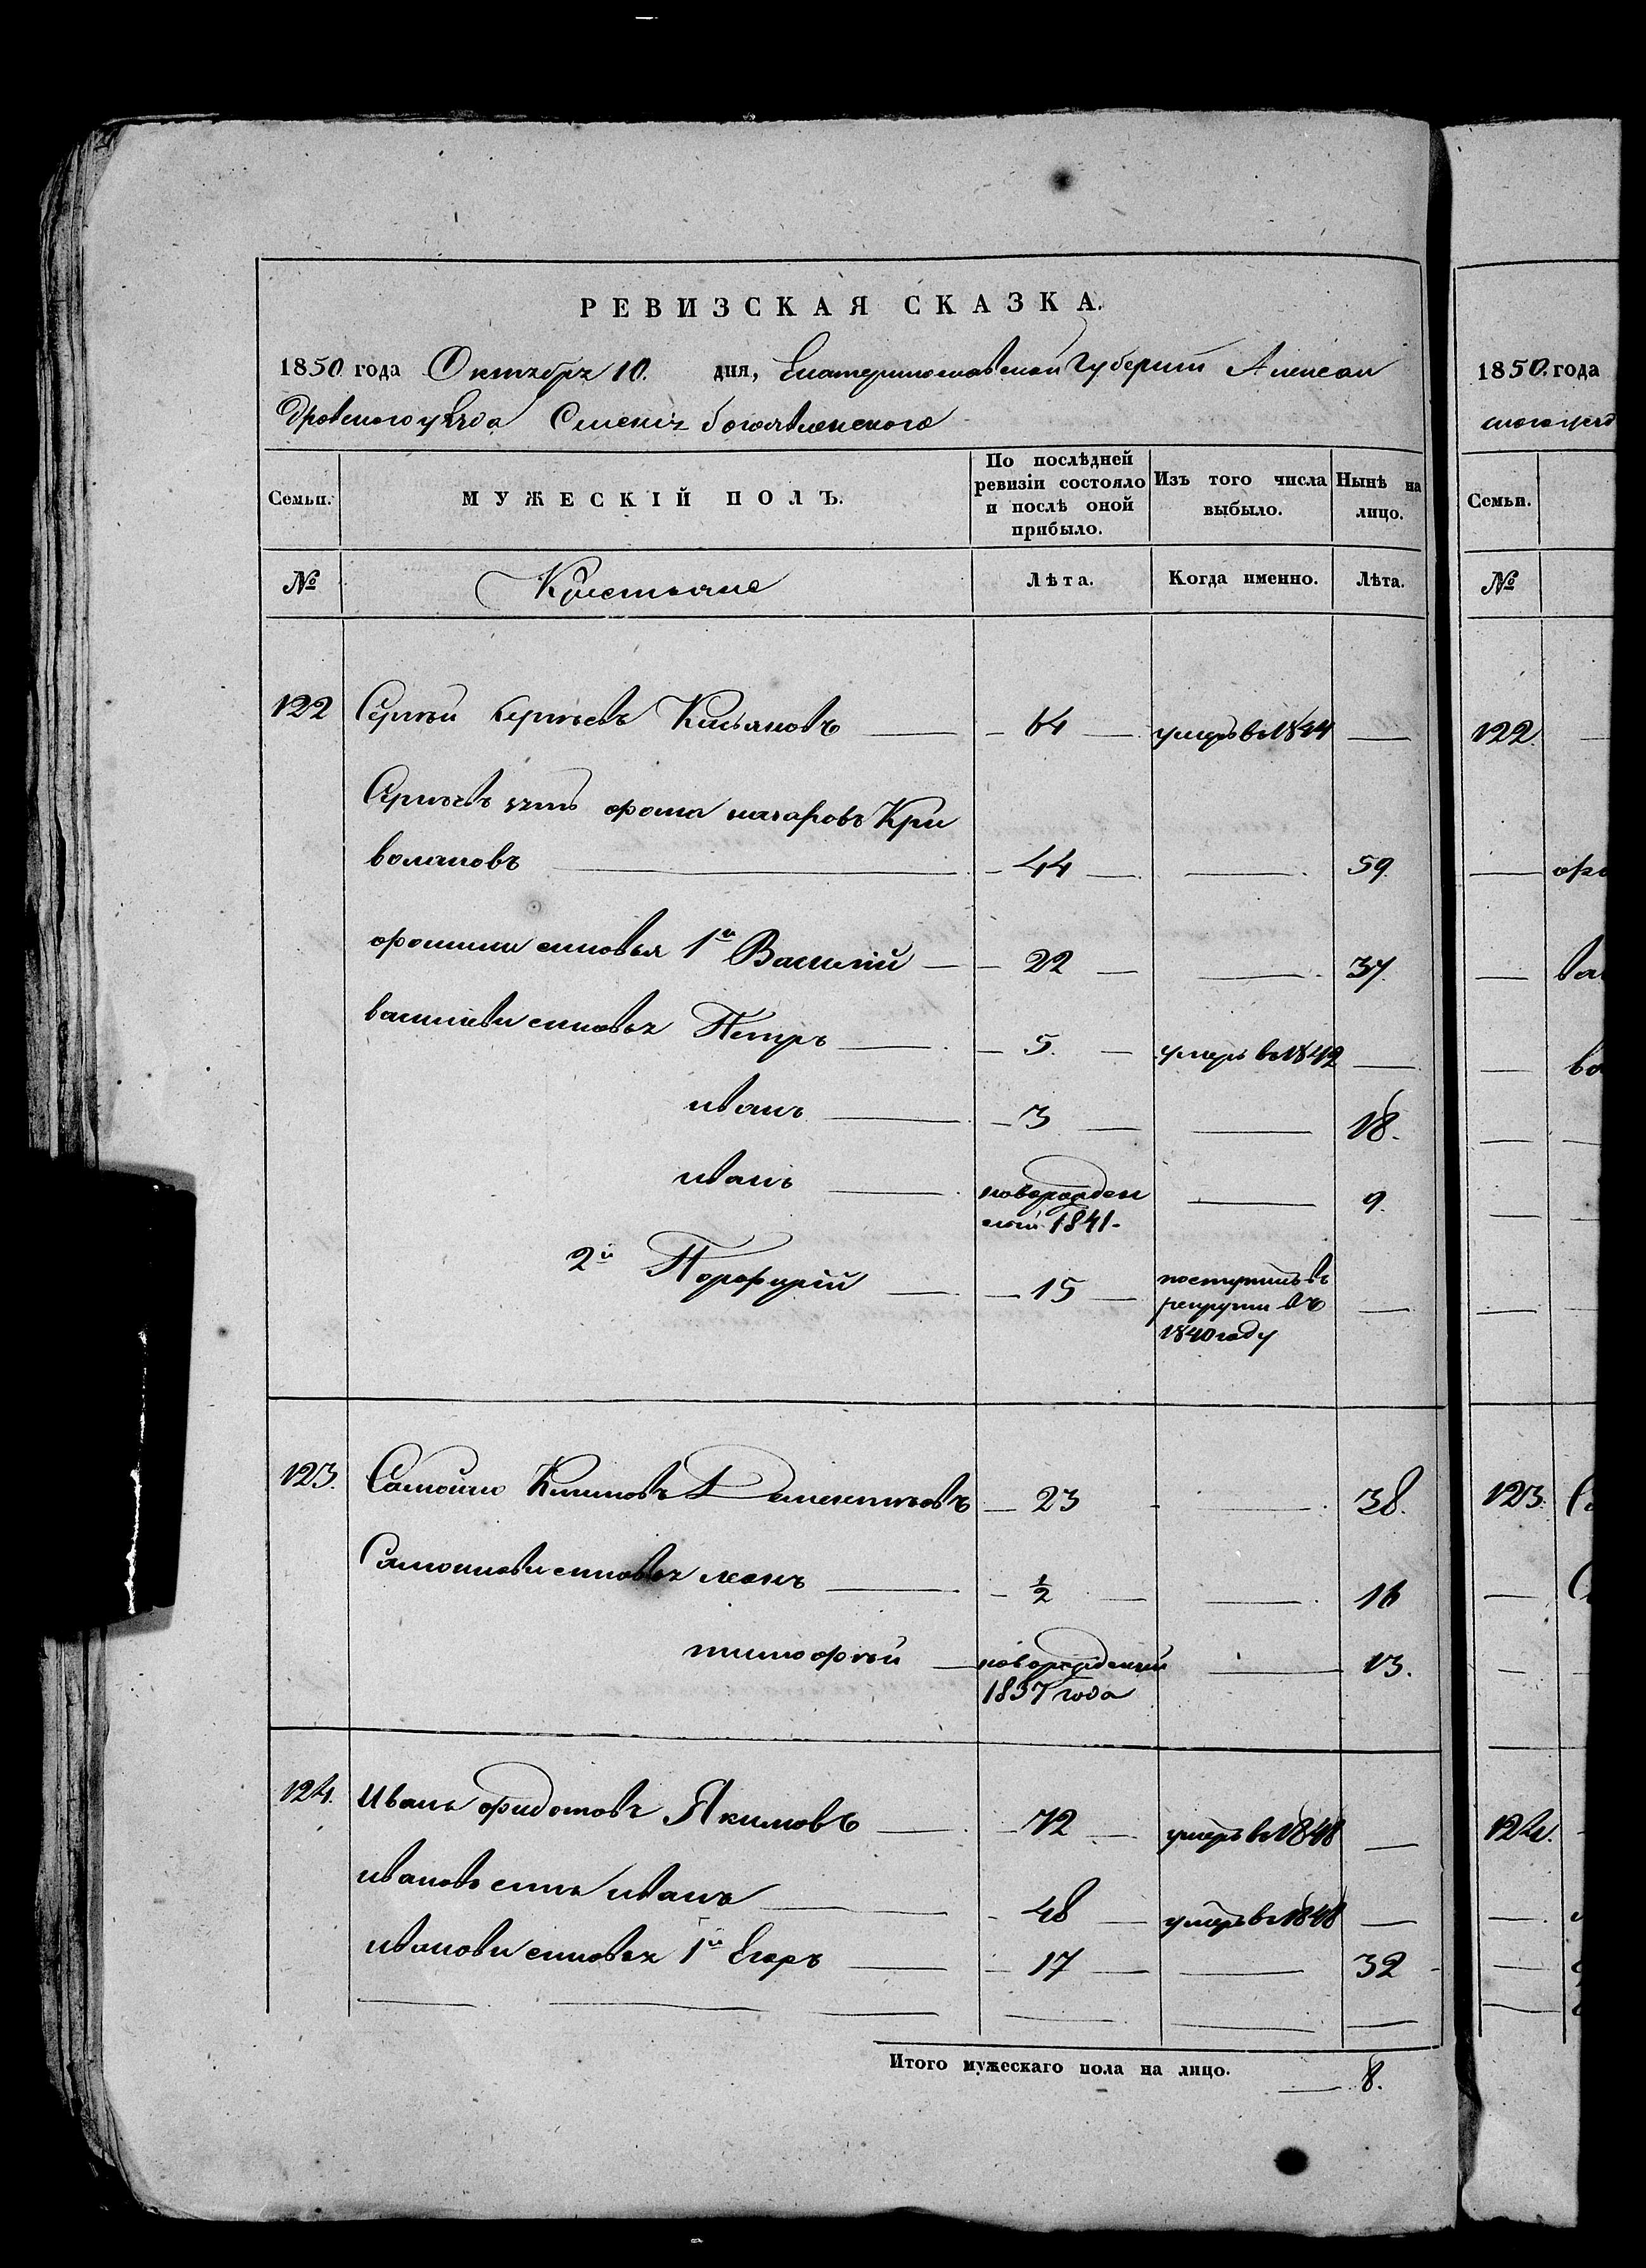 РЕВИЗСКАЯ СКАЗКА.
1850 года Октября 10. дня, Екатеринославской Губернии Алексан
дровского уѣзда Селенія богоявленского
Семьи. МУЖЕСКІЙ ПОЛЪ. По послѣдней ревизіи состояло и послѣ оной прибыло. Изъ того числа выбыло. Нынѣ на лицо.
№ Крестьяне Лѣта. Когда именно. Лѣта.
122 Сергѣй Сергѣевъ Касьяновъ 64 умеръ в 1844
Сергѣевъ зять фома назаровъ Кри
волаповъ 44 59.
фомины сыновья 1й Василій 22 37.
василіеви сыновья Петръ 5. умеръ в 1842
иванъ 3 18.
иванъ новорожден
ный 1841 9.
2й Порфирій 15 поступилъ в
рекруты въ
1840 году
123. Самойло Климовъ 23 38.
Самойлови сыновья леонъ ½ 16
тимофѣй новорожденый 13.
1837 года
124. Иванъ федотовъ Якимовъ 72 умеръ в 1848
ивановъ сынъ иванъ 48 умеръ в 1848
иванови сыновья 1й Егоръ 17 32
Итого мужескаго пола на лицо. 8.
1850. года
Семьи.
№
122.
123.
124.